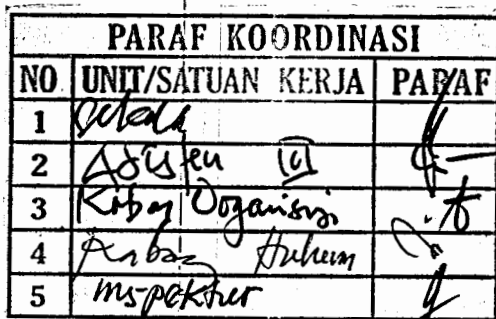 PARAF KOORDINASI
NO UNIT/SATUAN KERJA PARAF
1 Sekda
2 Asisten III
3 Kabag Organisasi
4 Kabag Hukum
5 Inspektur